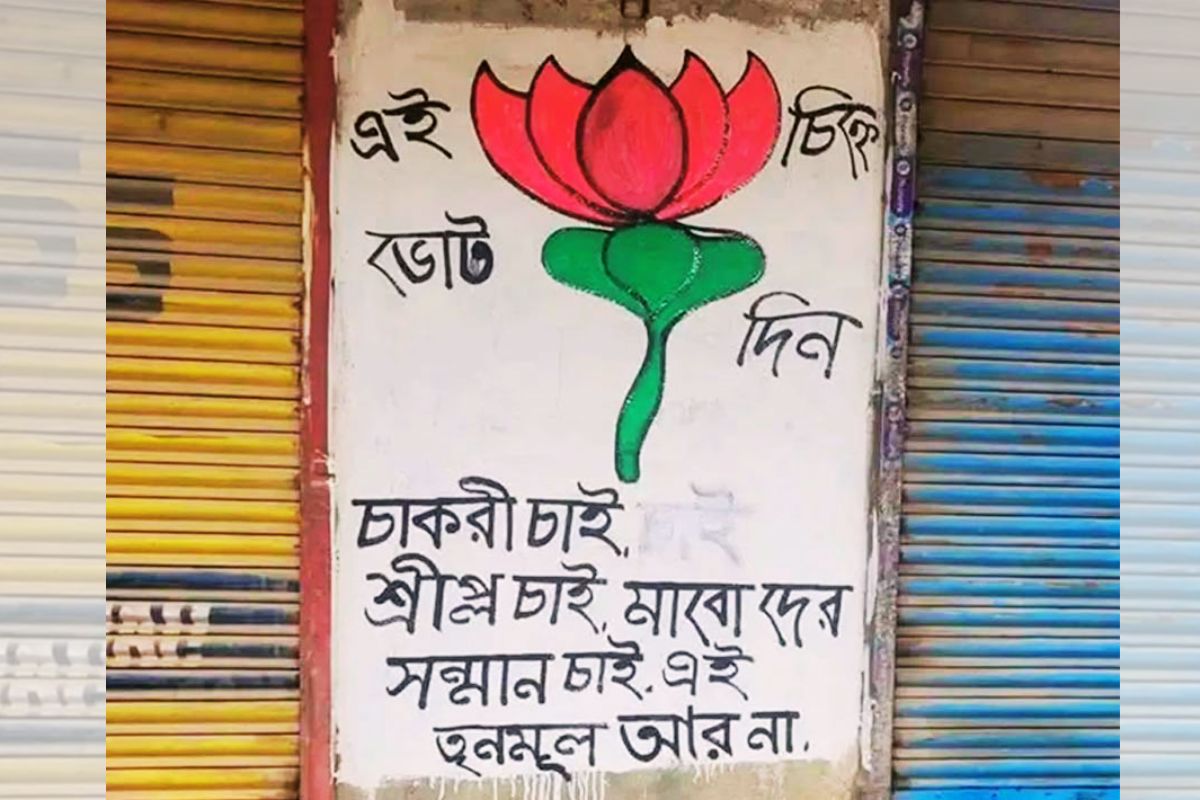 এই চিহ্নে
ভোট
দিন
চাকরী চাই. চাই
শ্রীপ্ল চাই. মাবো দের
সন্মান চাই. এই
তৃনমূল আর না.